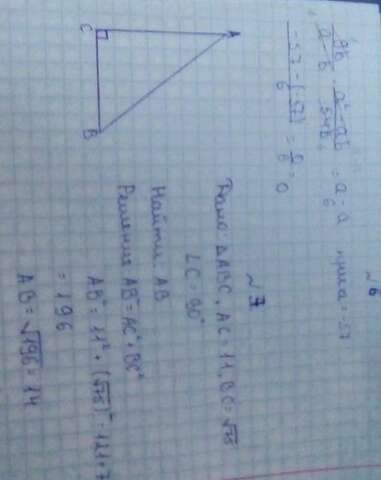 ~ 6
9b/(a-b) · (a²-ab)/54b = a·a/6 при a=-57
(-57-(-57))/6 = 0/6 = 0
~ 7
Дано: ΔABC, AC=11, BC=√75
∠C=90°
Найти: AB
Решение AB²=AC²+BC²
AB²=11²+(√75)²=121+7
=196
AB=√196=14
C
A
B